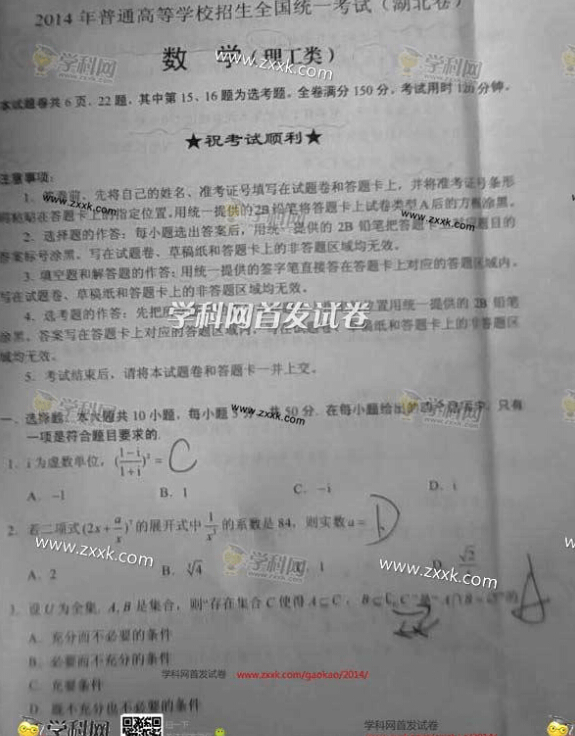 2014年普通高等学校招生全国统一考试(湖北卷)
数 学(理工类)
本试题卷共6页,22题,其中第15、16题为选考题。全卷满分150分。考试用时120分钟。
★祝考试顺利★
注意事项:
1. 答卷前,先将自己的姓名、准考证号填写在试题卷和答题卡上,并将准考证号条形
码粘贴在答题卡上的指定位置。用统一提供的2B铅笔将答题卡上试卷类型A后的方框涂黑。
2. 选择题的作答:每小题选出答案后,用统一提供的2B铅笔把答题卡上对应题目的
答案标号涂黑。写在试题卷、草稿纸和答题卡上的非答题区域均无效。
3. 填空题和解答题的作答:用统一提供的签字笔直接答在答题卡上对应的答题区域内。
写在试题卷、草稿纸和答题卡上的非答题区域均无效。
4. 选考题的作答:先把所 置用统一提供的2B铅笔
涂黑。答案写在答题卡上对应的答题区域内,写在试题卷、草稿纸和答题卡上的非答题区
域均无效。
5. 考试结束后,请将本试题卷和答题卡一并上交。
一、选择题:本大题共10小题,每小题5分,共50分.在每小题给出的四个选项中,只有
一项是符合题目要求的.
1. i为虚数单位,(\frac{1-i}{1+i})²= C
A. -1 B. 1 C. -i D. i
2. 若二项式(2x+\frac{a}{x})⁷的展开式中\frac{1}{x³}的系数是84,则实数a= D
A. 2 B. ⁵√4 C. 1 D. \frac{√2}{4}
3. 设U为全集,A,B是集合,则“存在集合C使得A⊆C, B⊆∁ᵤC”是“A∩B=∅”的 A
A. 充分而不必要的条件
B. 必要而不充分的条件
C. 充要条件
D. 既不充分也不必要的条件
学科网
www.zxxk.com
学科网首发试卷
www.zxxk.com/gaokao/2014/
学科网首发试卷